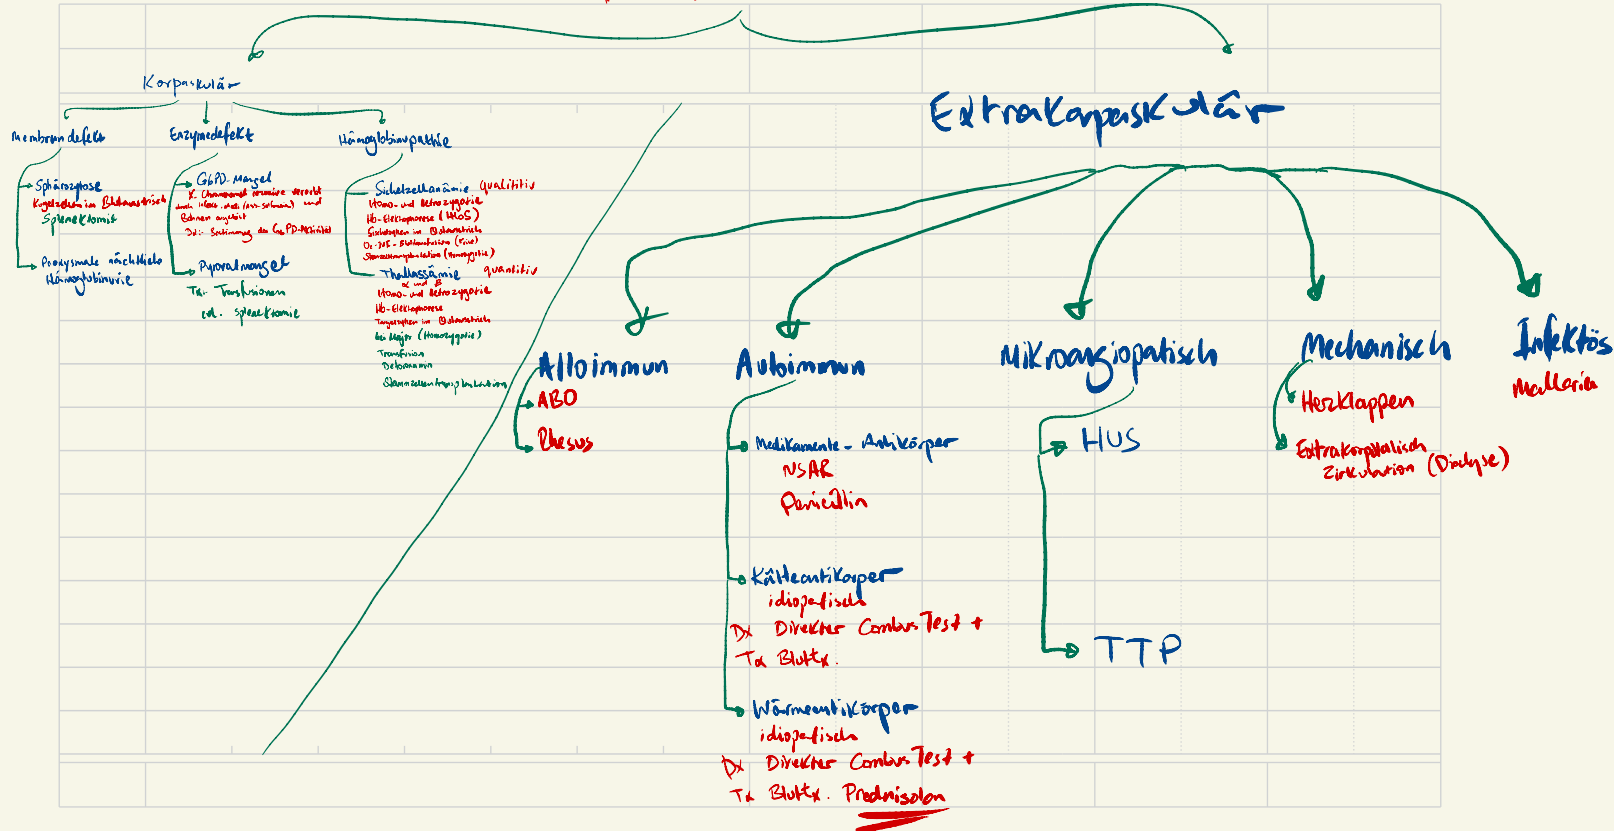 Korpaskulär
Membrandefekt
Sphärozytose
Kugelzellen im Blutausstrich
Splenektomie
Paroxysmale nächtliche
Hämoglobinurie
Enzymedefekt
G6PD-Mangel
X. Chromosomal rezessive vererbt
und
Bohnen
Dx: Bestimmung der G6PD-Aktivität
Pyruvatmangel
Tx: Transfusionen
Splenektomie
Hämoglobinopathie
Sichelzellanämie qualititiv
Homo- und Hetrozygotie
Hb-Elektrophorese (HbS)
Sichelzellen im Blutausstrich
Stammzelltransplantation (Homozygotie)
Thallassämie quantitiv
α und β
Homo- und Hetrozygotie
Hb-Elektrophorese
Targetzellen im Blutausstrich
bei Major (Homozygotie)
Transfusion
Stammzellentransplantation
Extrakorpaskulär
Alloimmun
ABO
Rhesus
Autoimmun
Medikamente - Antikörper
NSAR
Penicillin
Kälteantikörper
idiopatisch
Dx Direkter Combus Test +
Tx Bluttx.
Wärmeantikörper
idiopatisch
Dx Direkter Combus Test +
Tx Bluttx. Prednisolon
Mikroangiopatisch
HUS
TTP
Mechanisch
Herzklappen
Extrakorpolalisch
Zirkulation (Dialyse)
Infektös
Mallaria